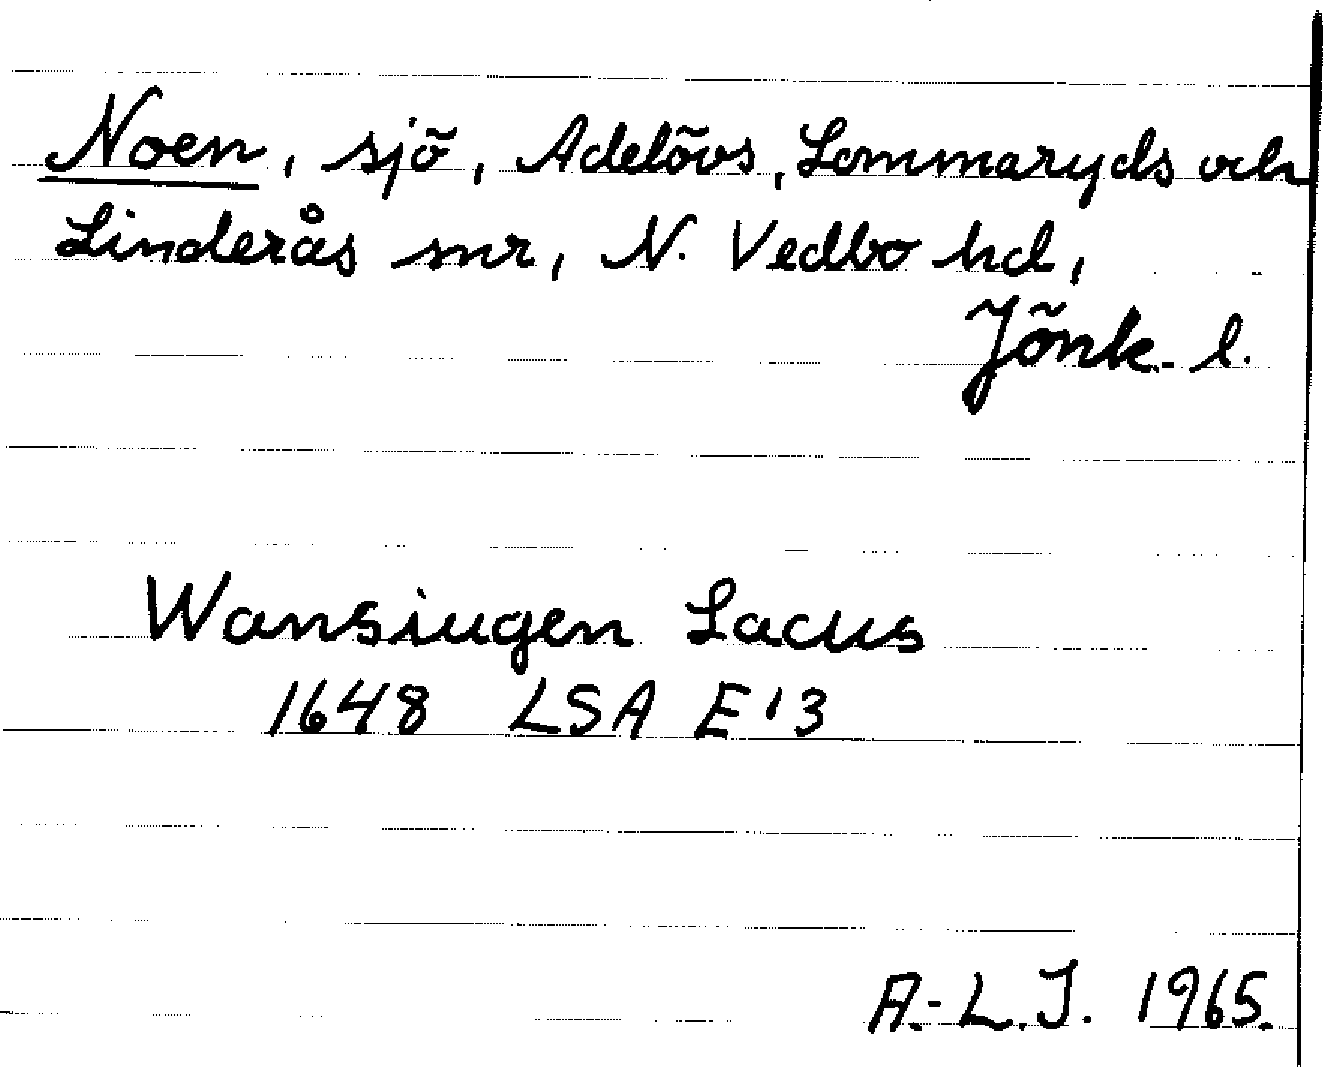 Noen, sjö, Adelövs, Lommaryds och
Linderås snr, N. Vedbo hd,
Jönk. l.
Wansiugen Lacus
1648 LSA E'3
A.-L.J. 1965.